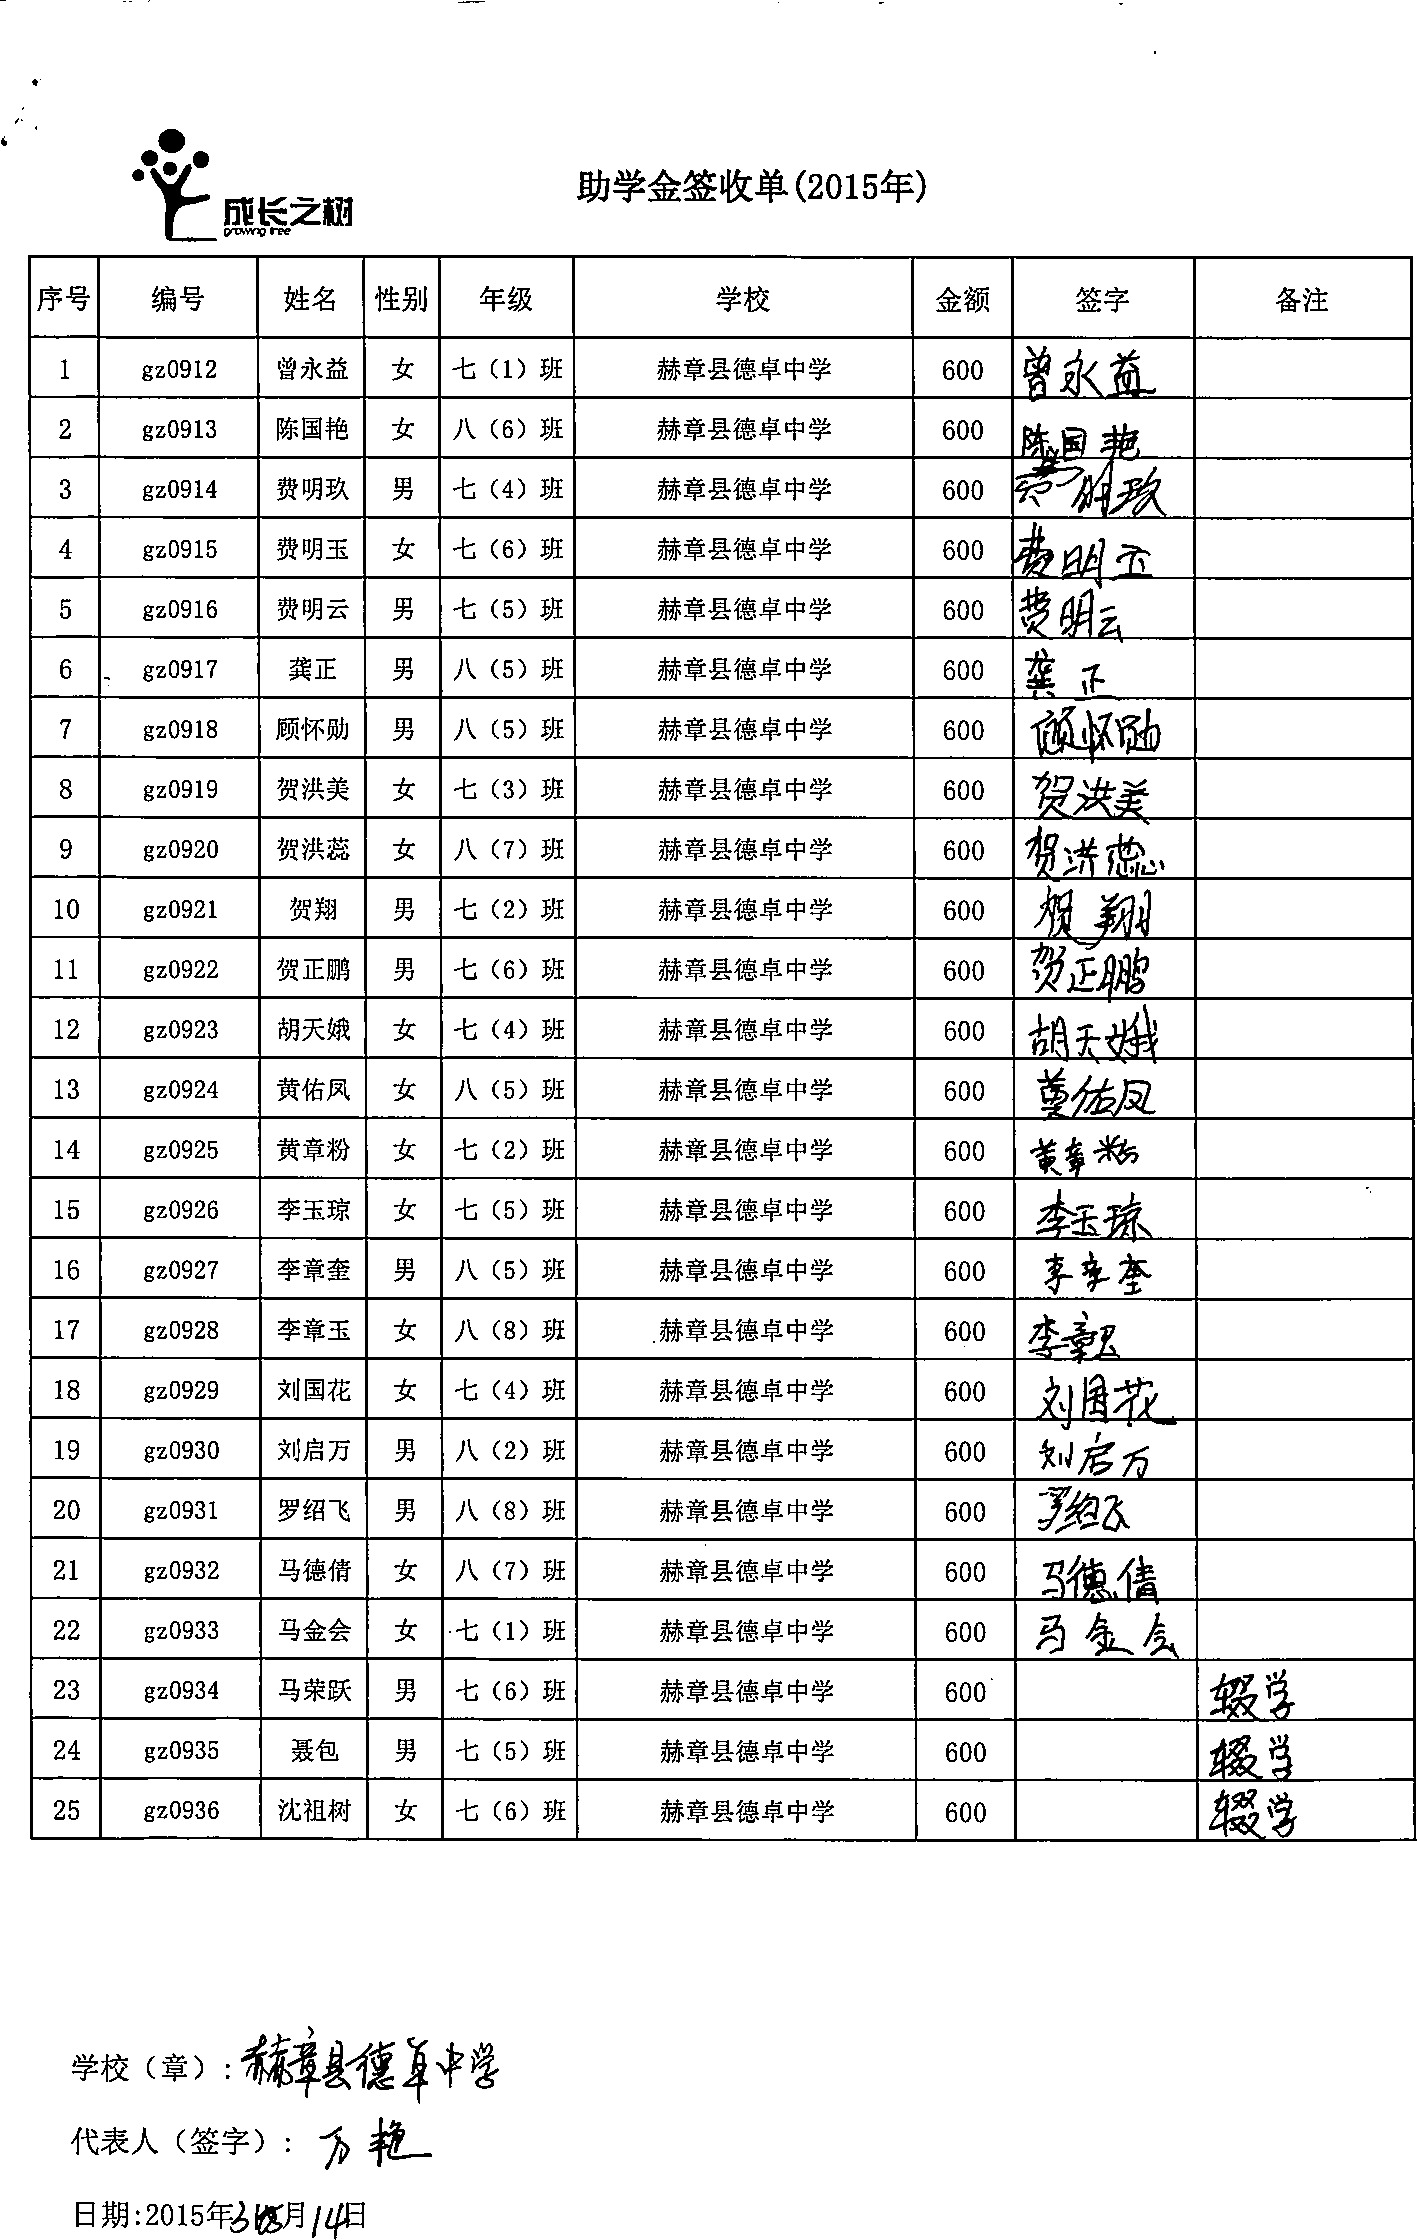 成长之树
growing tree
助学金签收单(2015年)
序号 编号 姓名 性别 年级 学校 金额 签字 备注
1 gz0912 曾永益 女 七（1）班 赫章县德卓中学 600 曾永益
2 gz0913 陈国艳 女 八（6）班 赫章县德卓中学 600 陈国艳
3 gz0914 费明玖 男 七（4）班 赫章县德卓中学 600 费明玖
4 gz0915 费明玉 女 七（6）班 赫章县德卓中学 600 费明玉
5 gz0916 费明云 男 七（5）班 赫章县德卓中学 600 费明云
6 gz0917 龚正 男 八（5）班 赫章县德卓中学 600 龚正
7 gz0918 顾怀勋 男 八（5）班 赫章县德卓中学 600 顾怀勋
8 gz0919 贺洪美 女 七（3）班 赫章县德卓中学 600 贺洪美
9 gz0920 贺洪蕊 女 八（7）班 赫章县德卓中学 600 贺洪蕊
10 gz0921 贺翔 男 七（2）班 赫章县德卓中学 600 贺翔
11 gz0922 贺正鹏 男 七（6）班 赫章县德卓中学 600 贺正鹏
12 gz0923 胡天娥 女 七（4）班 赫章县德卓中学 600 胡天娥
13 gz0924 黄佑凤 女 八（5）班 赫章县德卓中学 600 黄佑凤
14 gz0925 黄章粉 女 七（2）班 赫章县德卓中学 600 黄章粉
15 gz0926 李玉琼 女 七（5）班 赫章县德卓中学 600 李玉琼
16 gz0927 李章奎 男 八（5）班 赫章县德卓中学 600 李章奎
17 gz0928 李章玉 女 八（8）班 赫章县德卓中学 600 李章玉
18 gz0929 刘国花 女 七（4）班 赫章县德卓中学 600 刘国花
19 gz0930 刘启万 男 八（2）班 赫章县德卓中学 600 刘启万
20 gz0931 罗绍飞 男 八（8）班 赫章县德卓中学 600 罗绍飞
21 gz0932 马德倩 女 八（7）班 赫章县德卓中学 600 马德倩
22 gz0933 马金会 女 七（1）班 赫章县德卓中学 600 马金会
23 gz0934 马荣跃 男 七（6）班 赫章县德卓中学 600 辍学
24 gz0935 聂包 男 七（5）班 赫章县德卓中学 600 辍学
25 gz0936 沈祖树 女 七（6）班 赫章县德卓中学 600 辍学
学校（章）:赫章县德卓中学
代表人（签字）: 万艳
日期:2015年 月14日